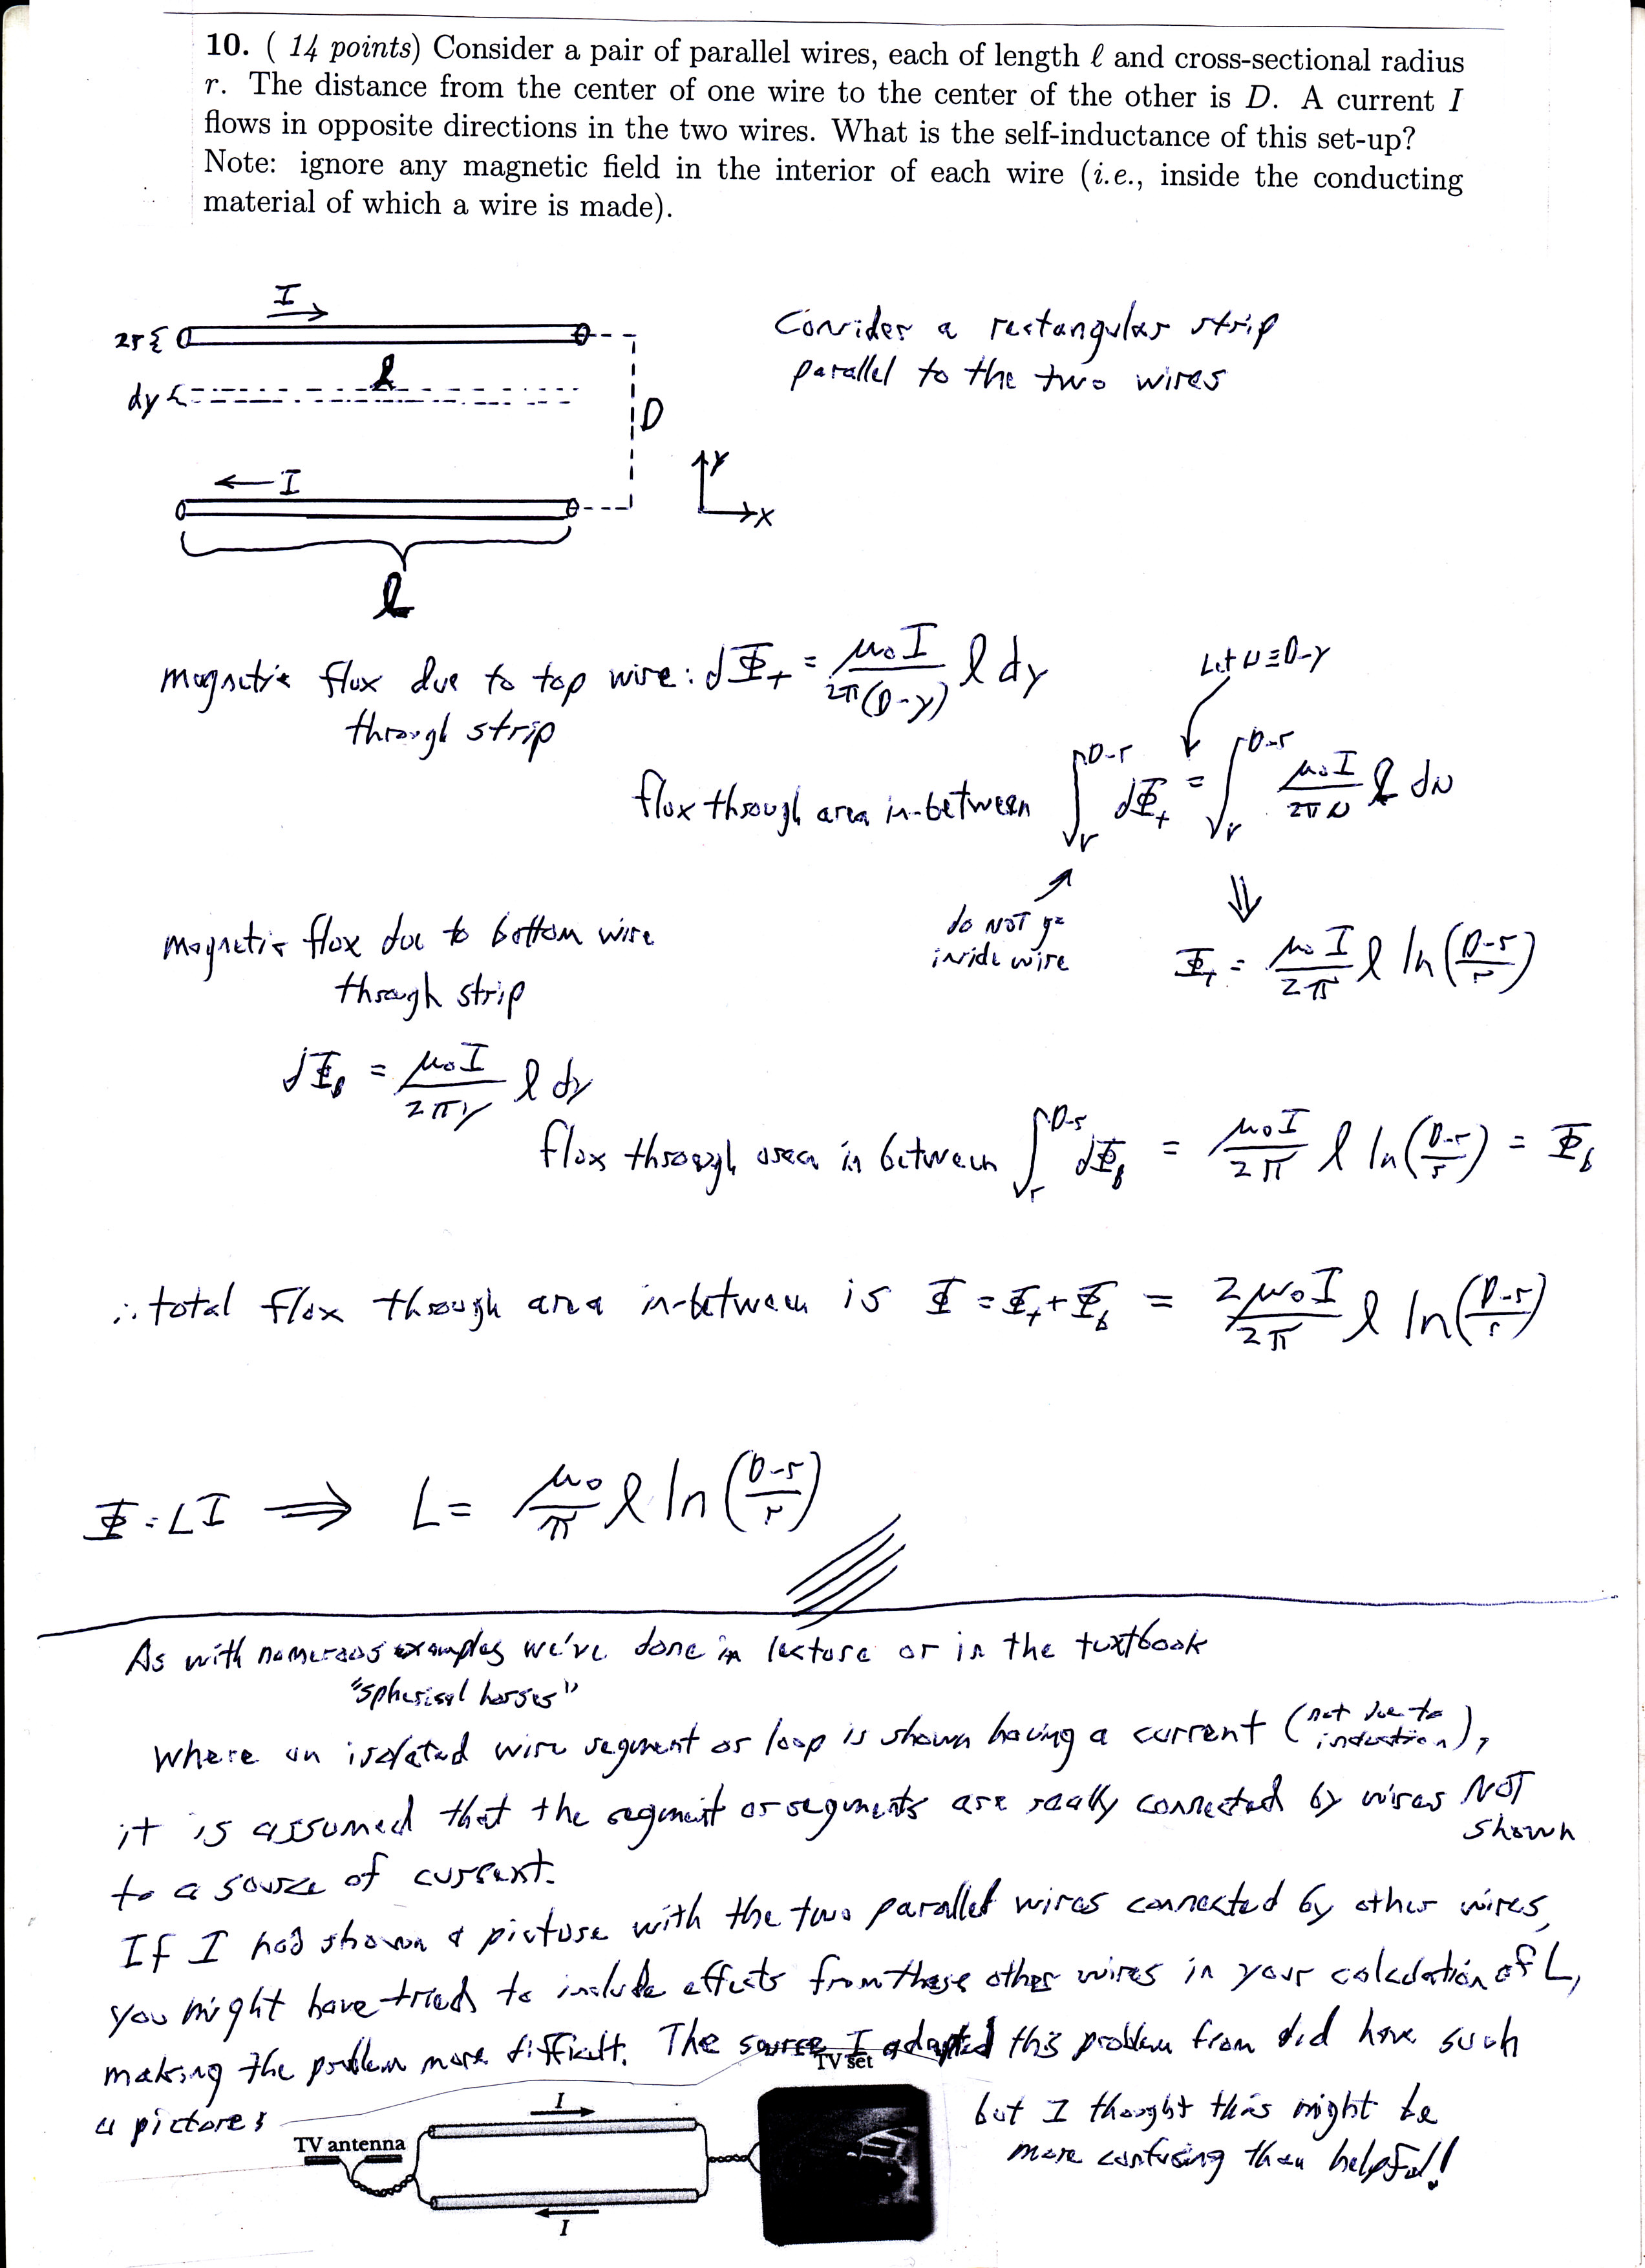 10. ( 14 points) Consider a pair of parallel wires, each of length ℓ and cross-sectional radius
r. The distance from the center of one wire to the center of the other is D. A current I
flows in opposite directions in the two wires. What is the self-inductance of this set-up?
Note: ignore any magnetic field in the interior of each wire (i.e., inside the conducting
material of which a wire is made).
I →
2r{
Consider a rectangular strip
parallel to the two wires
dy {
ℓ
D
← I
Y
X
ℓ
magnetic flux due to top wire: dΦ_t = μ₀I / 2π(D-y) ℓ dy
through strip
Let u ≡ D-y
flux through area in-between ∫_r^{D-r} dΦ_t = ∫_r^{D-r} μ₀I / 2πu ℓ du
do NOT go
inside wire
⇓
Φ_t = μ₀I / 2π ℓ ln((D-r)/r)
magnetic flux due to bottom wire
through strip
dΦ_b = μ₀I / 2πy ℓ dy
flux through area in between ∫_r^{D-r} dΦ_b = μ₀I / 2π ℓ ln((D-r)/r) = Φ_b
∴ total flux through area in-between is Φ = Φ_t + Φ_b = 2μ₀I / 2π ℓ ln((D-r)/r)
Φ = LI ⟹ L = μ₀ / π ℓ ln((D-r)/r)
As with numerous examples we've done in lecture or in the textbook
"spherical horses"
where an isolated wire segment or loop is shown having a current (not due to induction),
it is assumed that the segment or segments are really connected by wires NOT
shown
to a source of current.
If I had shown a picture with the two parallel wires connected by other wires,
you might have tried to include effects from these other wires in your calculation of L,
making the problem more difficult. The source I adapted this problem from did have such
a picture:
TV set
but I thought this might be
more confusing than helpful!
TV antenna
I
I